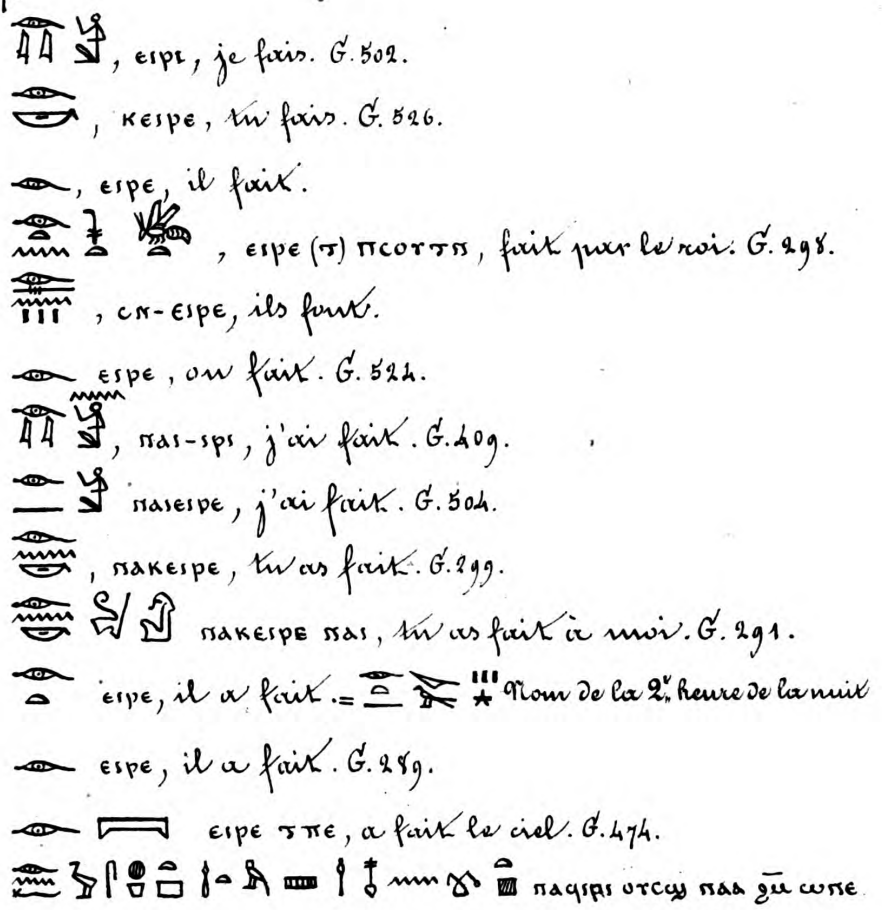 𓁹𓇋𓇋𓀀, ⲉⲓⲣⲓ, je fais. G. 502.
𓁹𓎡, ⲕⲉⲓⲣⲉ, tu fais. G. 526.
𓁹, ⲉⲓⲣⲉ, il fait.
𓁹𓏏𓈖 𓇓𓏏 𓆤𓏏, ⲉⲓⲣⲉ (ⲧ) ⲛⲥⲟⲩⲧⲛ, fait par le roi. G. 298.
𓁹𓊃𓈖𓏥, ⲥⲛ-ⲉⲓⲣⲉ, ils font.
𓁹 ⲉⲓⲣⲉ, on fait. G. 524.
𓁹𓇋𓇋𓈖𓀀, ⲛⲁⲓ-ⲓⲣⲓ, j'ai fait. G. 409.
𓁹 𓀀 ⲛⲁⲓⲉⲓⲣⲉ, j'ai fait. G. 504.
𓁹𓈖𓎡, ⲛⲁⲕⲉⲓⲣⲉ, tu as fait. G. 299.
𓁹𓈖𓎡 ⲛⲁⲕⲉⲓⲣⲉ ⲛⲁⲓ, tu as fait à moi. G. 291.
𓁹𓏏 ⲉⲓⲣⲉ, il a fait. = Nom de la 2e heure de la nuit
𓁹 ⲉⲓⲣⲉ, il a fait. G. 289.
𓁹 𓇯 ⲉⲓⲣⲉ ⲧⲡⲉ, a fait le ciel. G. 474.
ⲛⲁϥⲓⲣⲓ ⲟⲩⲥϣ ⲛⲁⲁ ϩⲙ̄ ⲱⲛⲉ.